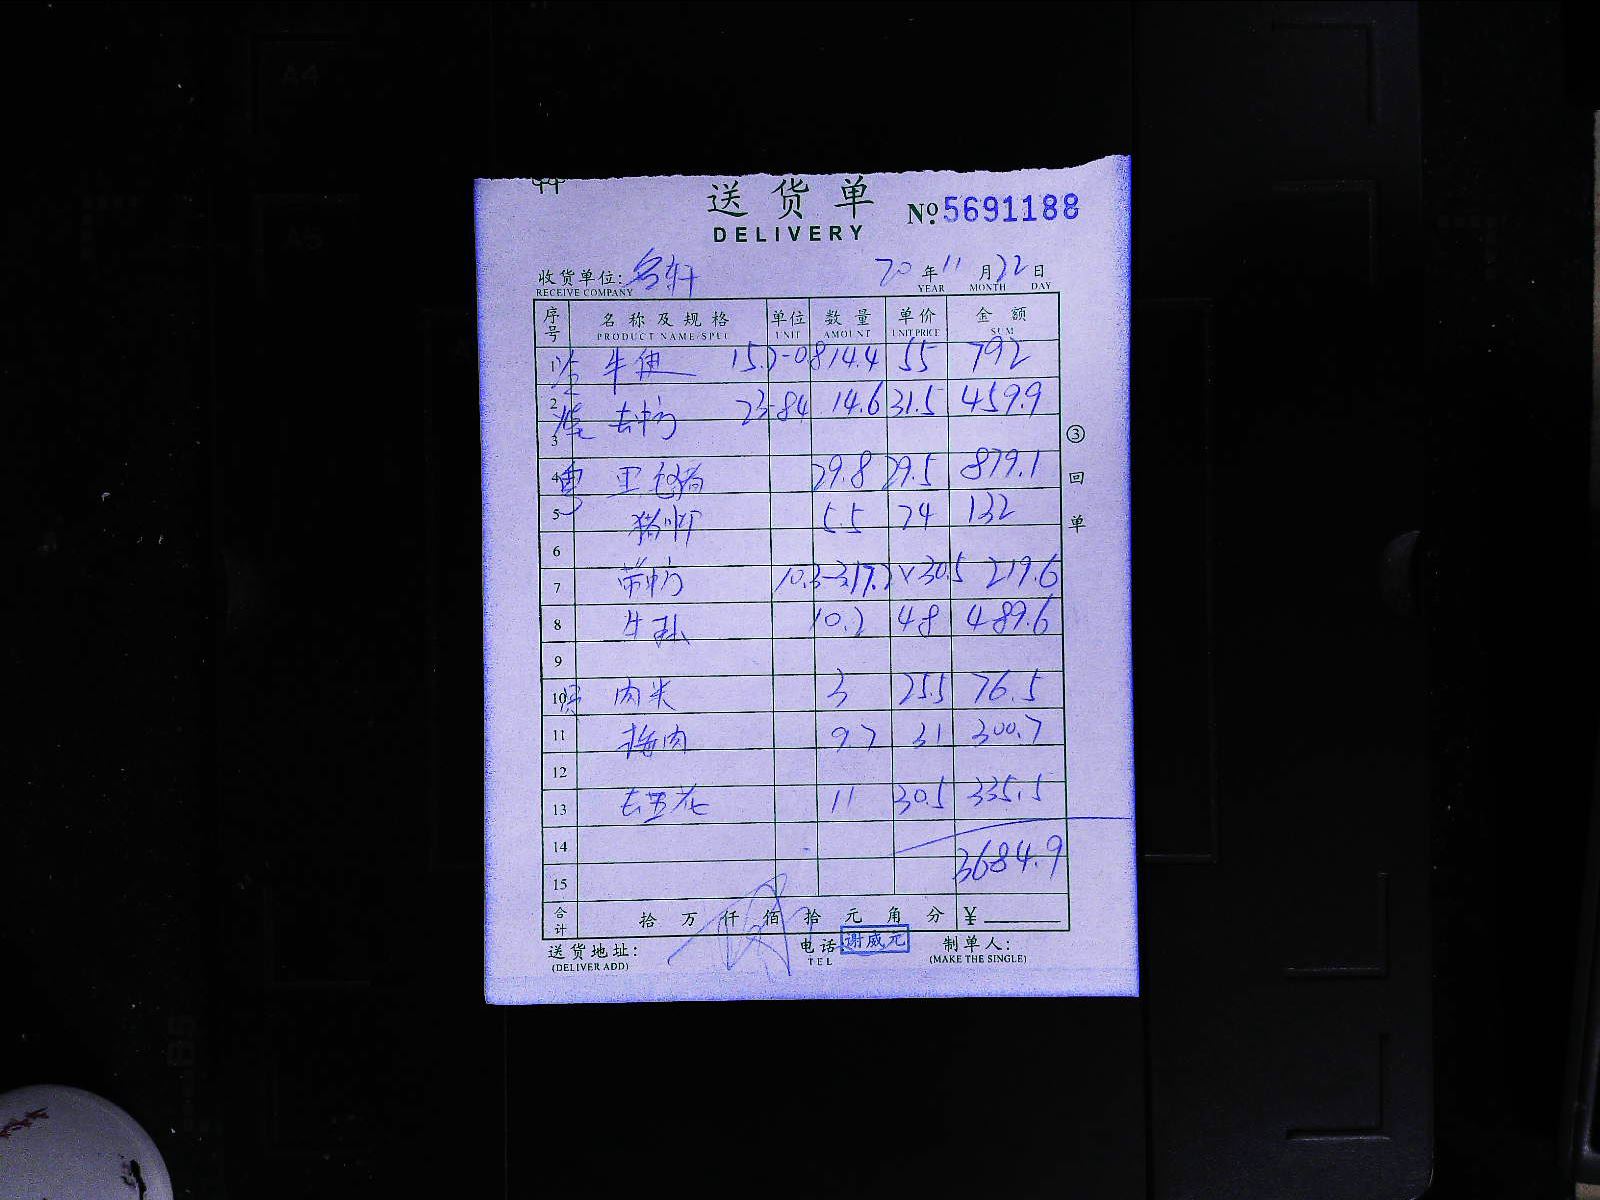 送货单
DELIVERY
№5691188
收货单位: 名轩
RECEIVE COMPANY
20年11月22日
YEAR MONTH DAY
序号 名称及规格 单位 数量 单价 金额
PRODUCT NAME/SPEC UNIT AMOUNT UNIT PRICE SUM
1 牛 14.4 55 792
2 14.6 31.5 459.9
3
4 29.8 29.5 879.1
5 猪 5.5 24 132
6
7 7.2×30.5 219.6
8 牛 10.2 48 489.6
9
10 肉米 3 25.5 76.5
11 梅肉 9.7 31 300.7
12
13 去五花 11 30.5 335.5
14
3684.9
15
合计 拾 万 仟 佰 拾 元 角 分 ¥
③回单
送货地址: 电话 谢威元 制单人:
(DELIVER ADD) TEL (MAKE THE SINGLE)
A4
A5